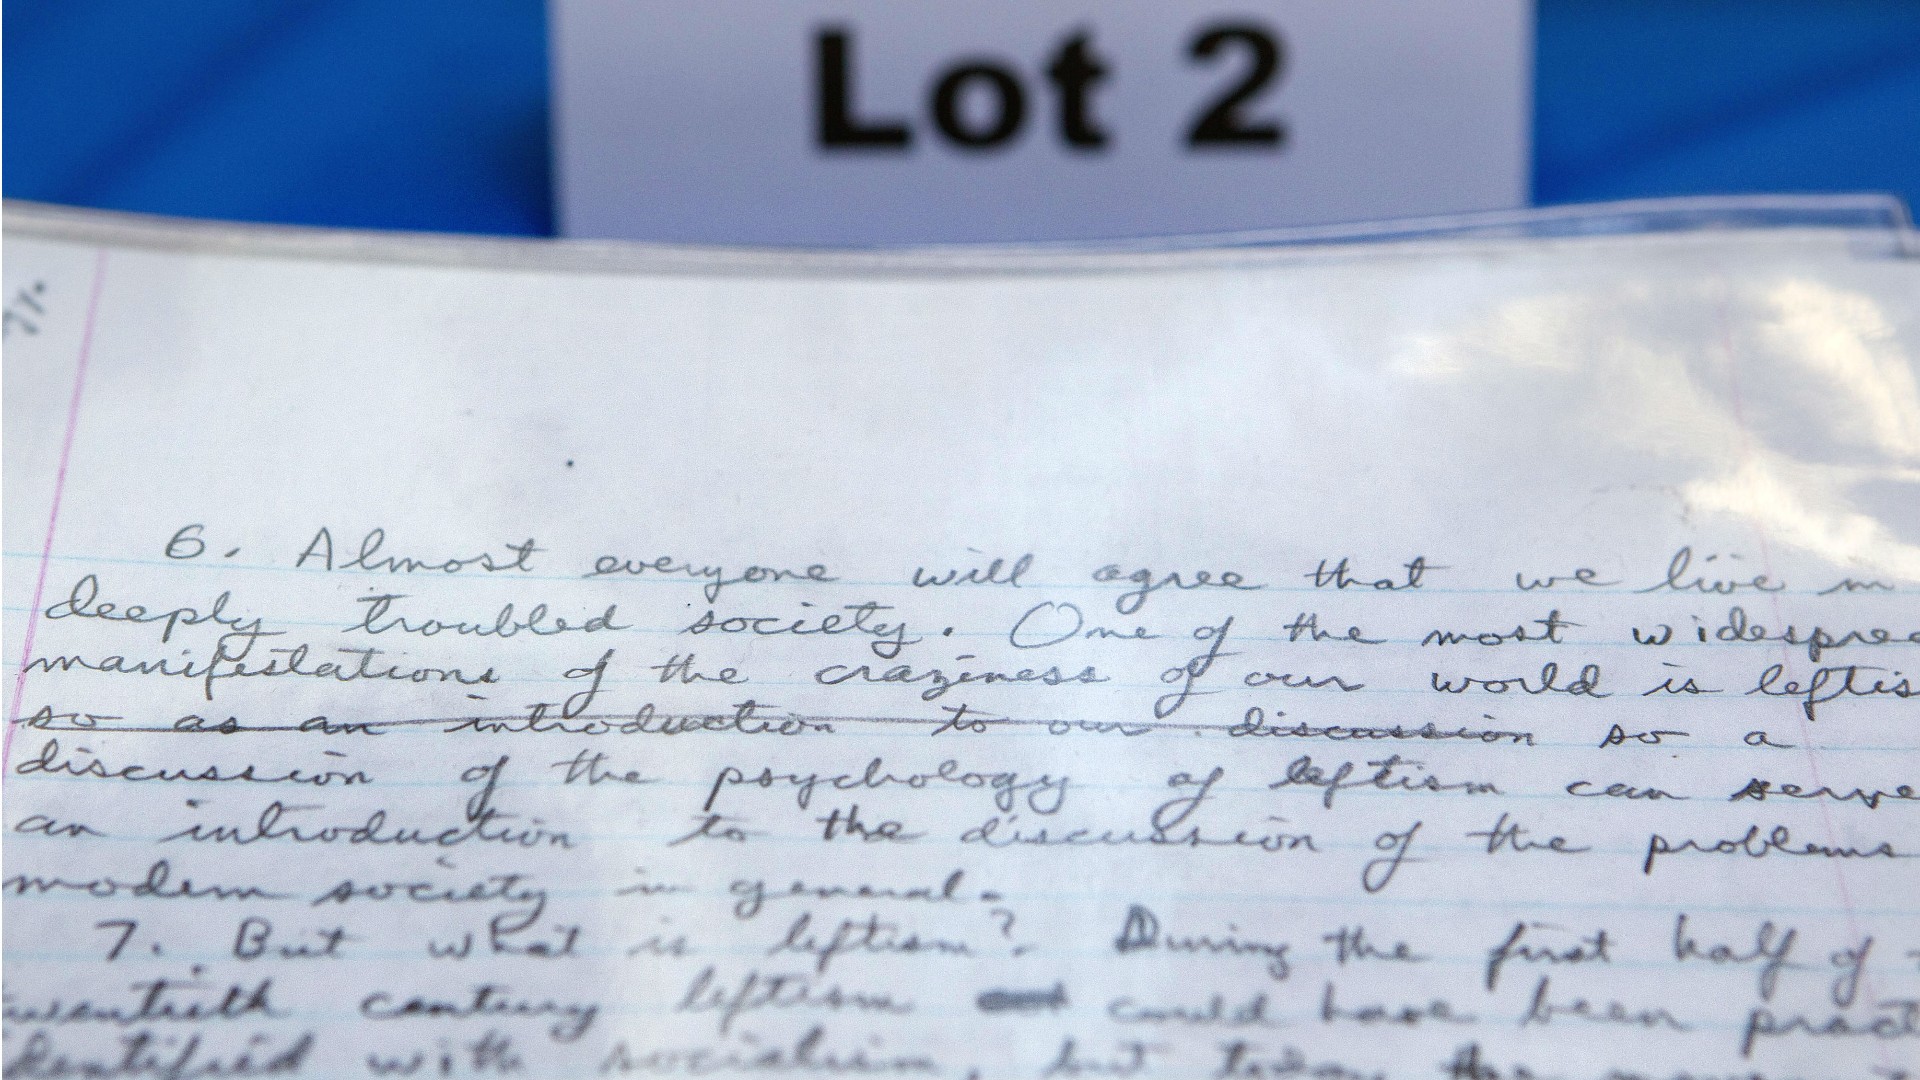 Lot 2
6. Almost everyone will agree that we live in
deeply troubled society. One of the most widesprea
manifestations of the craziness of our world is leftis
so as an introduction to our discussion so a
discussion of the psychology of leftism can serve
an introduction to the discussion of the problems
modern society in general.
7. But what is leftism? During the first half of
twentieth century leftism could have been pract
identified with socialism, but today the